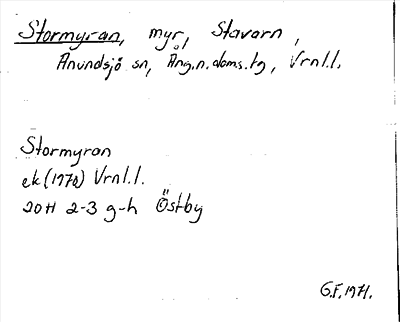 Stormyran, myr, Stavarn,
Anundsjö sn, Ång.n.doms.tg, Vrnl.l.
Stormyran
ek (1970) Vrnl.l.
20H 2-3 g-h Östby
G.F. 1971.